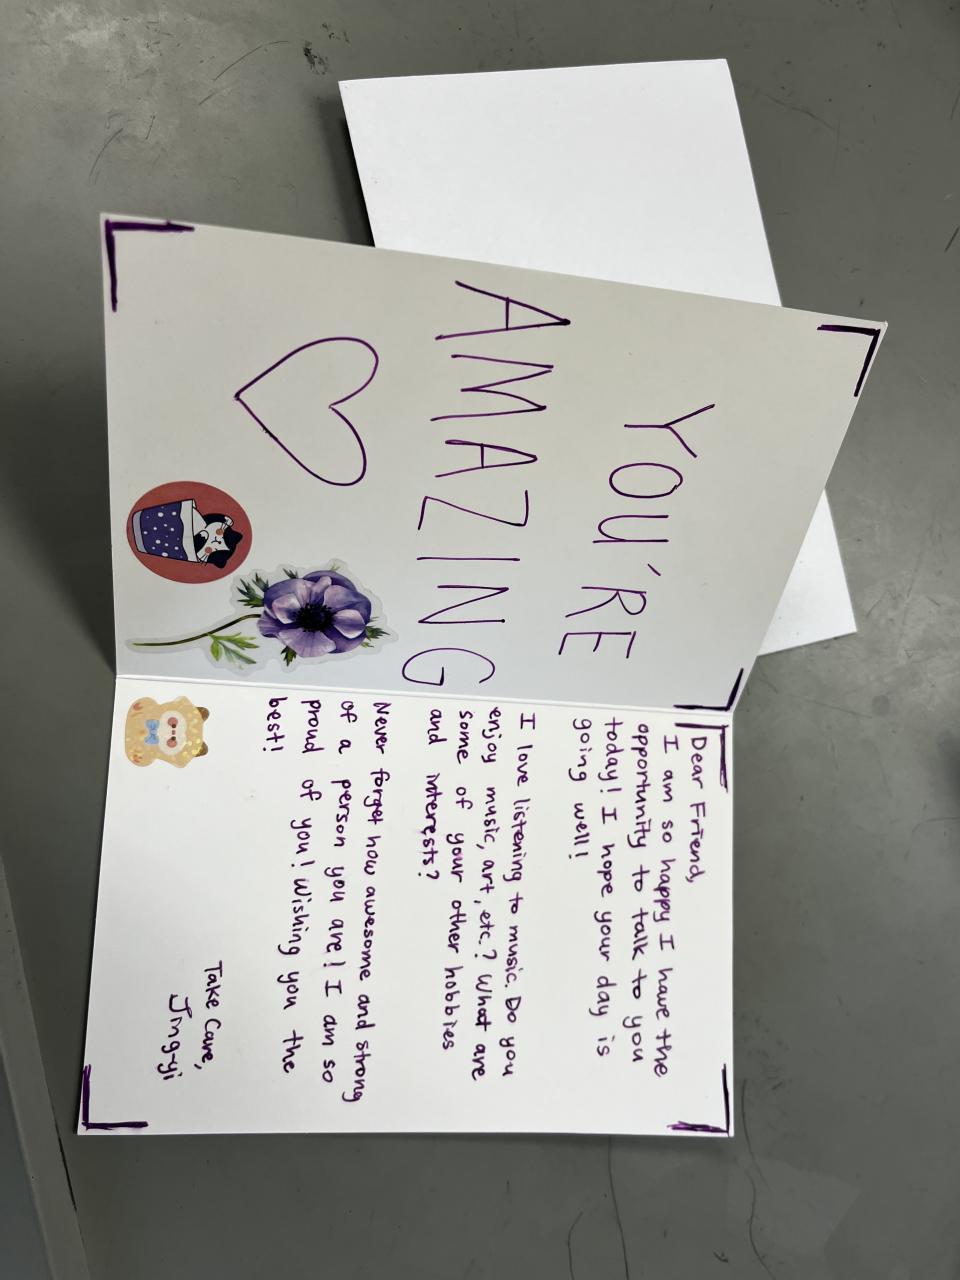 YOU'RE
AMAZING
Dear Friend,
I am so happy I have the
opportunity to talk to you
today! I hope your day is
going well!
I love listening to music. Do you
enjoy music, art, etc.? What are
some of your other hobbies
and interests?
Never forget how awesome and strong
of a person you are! I am so
proud of you! Wishing you the
best!
Take Care,
Jing-yi